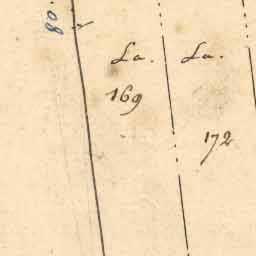 .08
La. La.
169
172